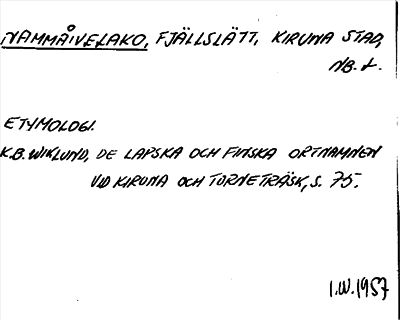 NAMMÅIVELAKO, FJÄLLSLÄTT, KIRUNA STAD,
NB. L.
ETYMOLOGI.
K.B. WIKLUND, DE LAPSKA OCH FINSKA ORTNAMNEN
VID KIRUNA OCH TORNETRÄSK, S. 75.
I.W. 1957